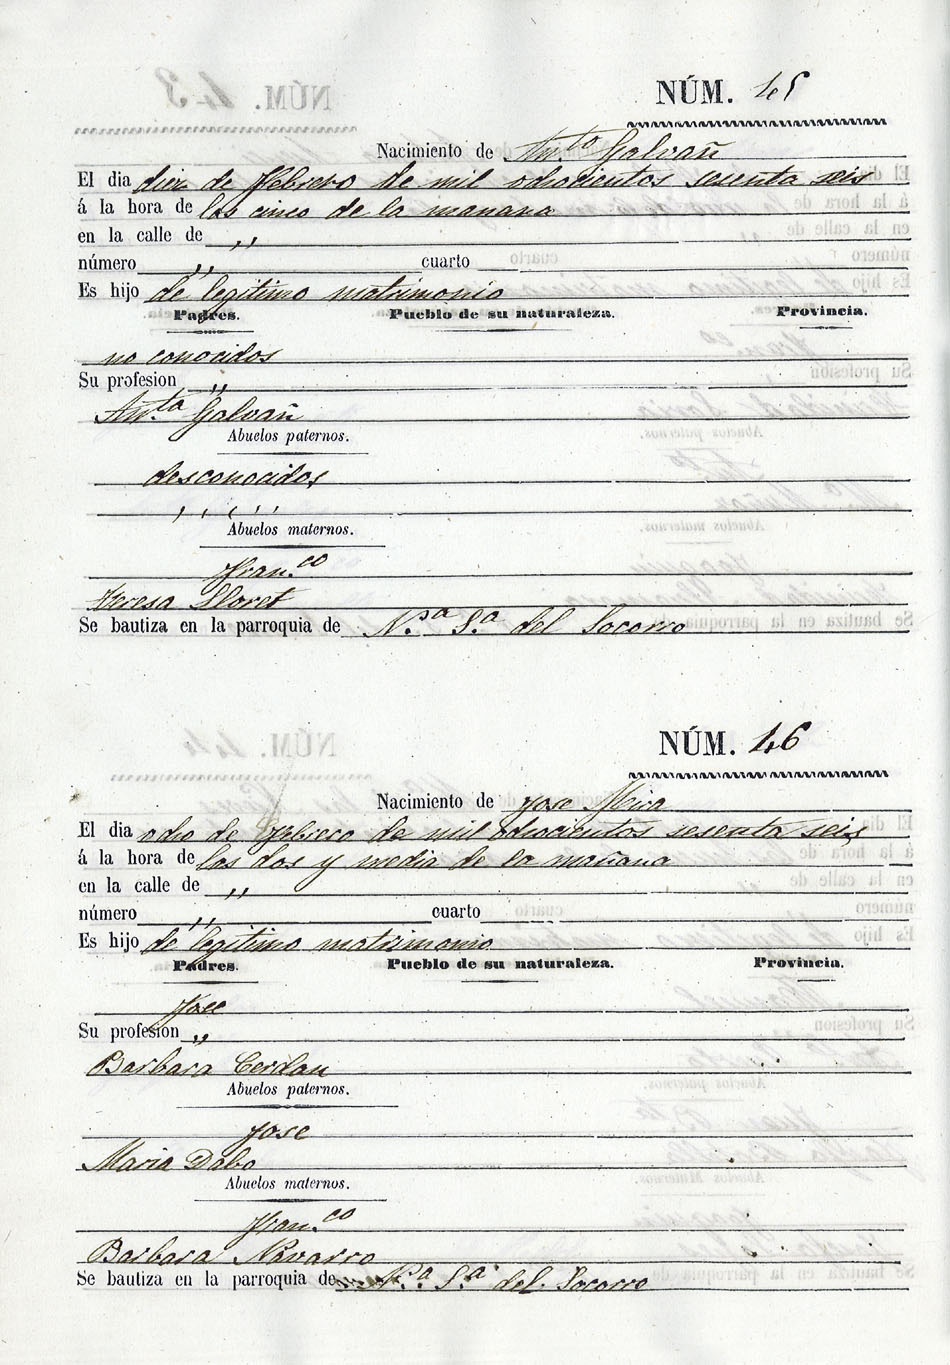 NÚM. 45
Nacimiento de Ant.to Galvañ
El dia diez de Febrero de mil ochocientos sesenta seis
á la hora de las cinco de la manana
en la calle de ,,
número ,, cuarto
Es hijo de legitimo matrimonio
Padres. Pueblo de su naturaleza. Provincia.
no conocidos
Su profesion ,,
Ant.ta Galvañ
Abuelos paternos.
desconocidos
, , , , ,
Abuelos maternos.
Fran.co
Teresa Lloret
Se bautiza en la parroquia de N.sa S.a del Socorro
NÚM. 46
Nacimiento de Jose Mira
El dia ocho de Febrero de mil ochocientos sesenta seis
á la hora de las dos y media de la mañana
en la calle de ,,
número ,, cuarto
Es hijo de legitimo matrimonio
Padres. Pueblo de su naturaleza. Provincia.
Jose
Su profesion ,,
Barbara Cerdan
Abuelos paternos.
Jose
Maria Dabo
Abuelos maternos.
Fran.co
Barbara Navarro
Se bautiza en la parroquia de N.a S.a del Socorro